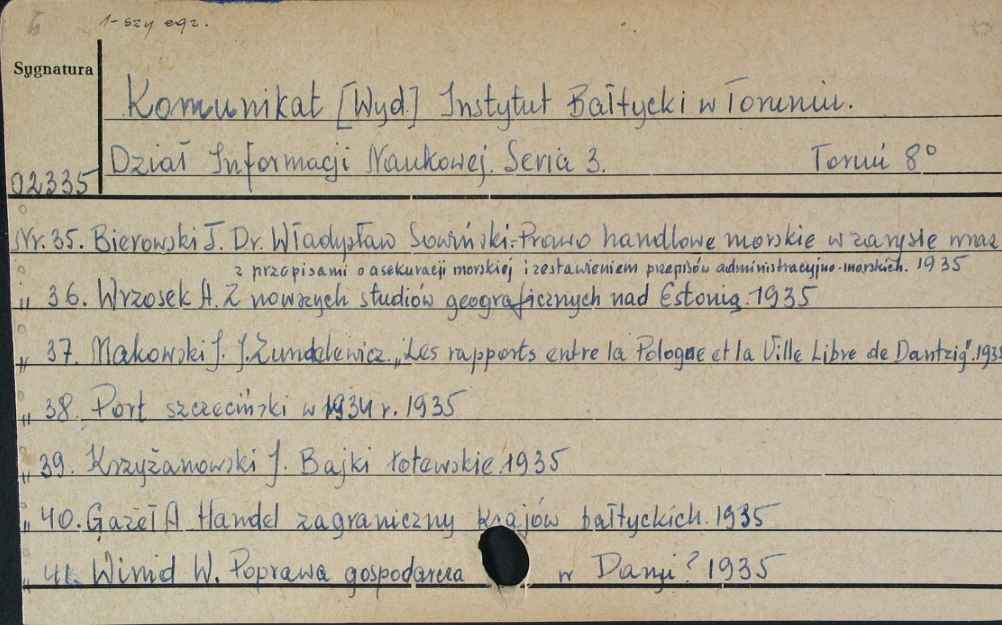 1-szy egz.
Sygnatura
Komunikat [Wyd.] Instytut Bałtycki w Toruniu.
Dział Informacji Naukowej. Seria 3. Toruń 8°
02335
Nr. 35. Bierowski T. Dr. Władysław Sowiński: Prawo handlowe morskie w zarysie wraz
z przepisami o asekuracji morskiej i zestawieniem przepisów administracyjno-morskich. 1935
„ 36. Wrzosek A. Z nowszych studiów geograficznych nad Estonią. 1935
„ 37. Makowski J. J. Zundelewicz. „Les rapports entre la Pologne et la Ville Libre de Dantzig". 1935
„ 38. Port szczeciński w 1934 r. 1935
„ 39. Krzyżanowski J. Bajki łotewskie. 1935
„ 40. Gazeł A Handel zagraniczny krajów bałtyckich. 1935
„ 41. Winid W. Poprawa gospodarcza w Danji? 1935